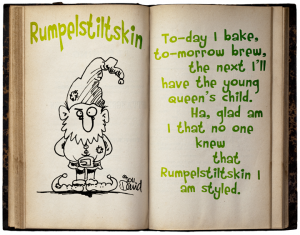 Rumpelstiltskin
To-day I bake,
to-morrow brew,
the next I'll
have the young
queen's child.
Ha, glad am
I that no one
knew
that
Rumpelstiltskin I
am styled.
David